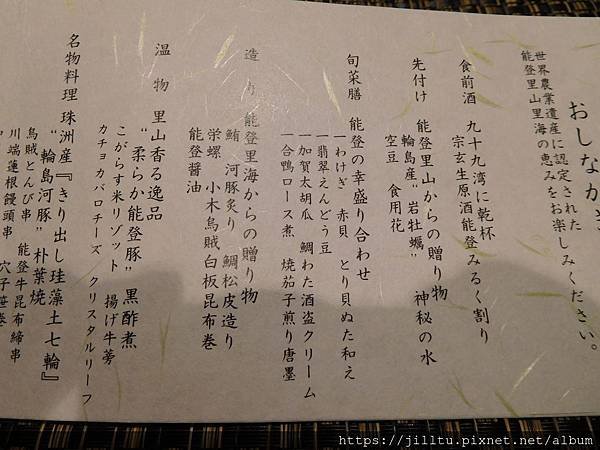 おしながき
世界農業遺産に認定された
能登里山里海の恵みをお楽しみください。
食前酒 九十九湾に乾杯
宗玄生原酒能登みるく割り
先付け 能登里山からの贈り物 神秘の水
輪島産"岩牡蠣"
空豆 食用花
旬菜膳 能登の幸盛り合わせ
一わけぎ 赤貝 とり貝ぬた和え
一翡翠えんどう豆
一加賀太胡瓜 鯛わた酒盗クリーム
一合鴨ロース煮 焼茄子煎り唐墨
造り 能登里海からの贈り物
鮪 河豚炙り 鯛松皮造り
栄螺 小木烏賊白板昆布巻
能登醤油
温物 里山香る逸品
"柔らか能登豚"黒酢煮
こがらす米リゾット 揚げ牛蒡
カチョカバロチーズ クリスタルリーフ
名物料理 珠洲産『きり出し珪藻土七輪』
"輪島河豚"朴葉焼
烏賊とんび串 能登牛昆布締串
川端蓮根饅頭串 穴子笹巻
https://jilltu.pixnet.net/album